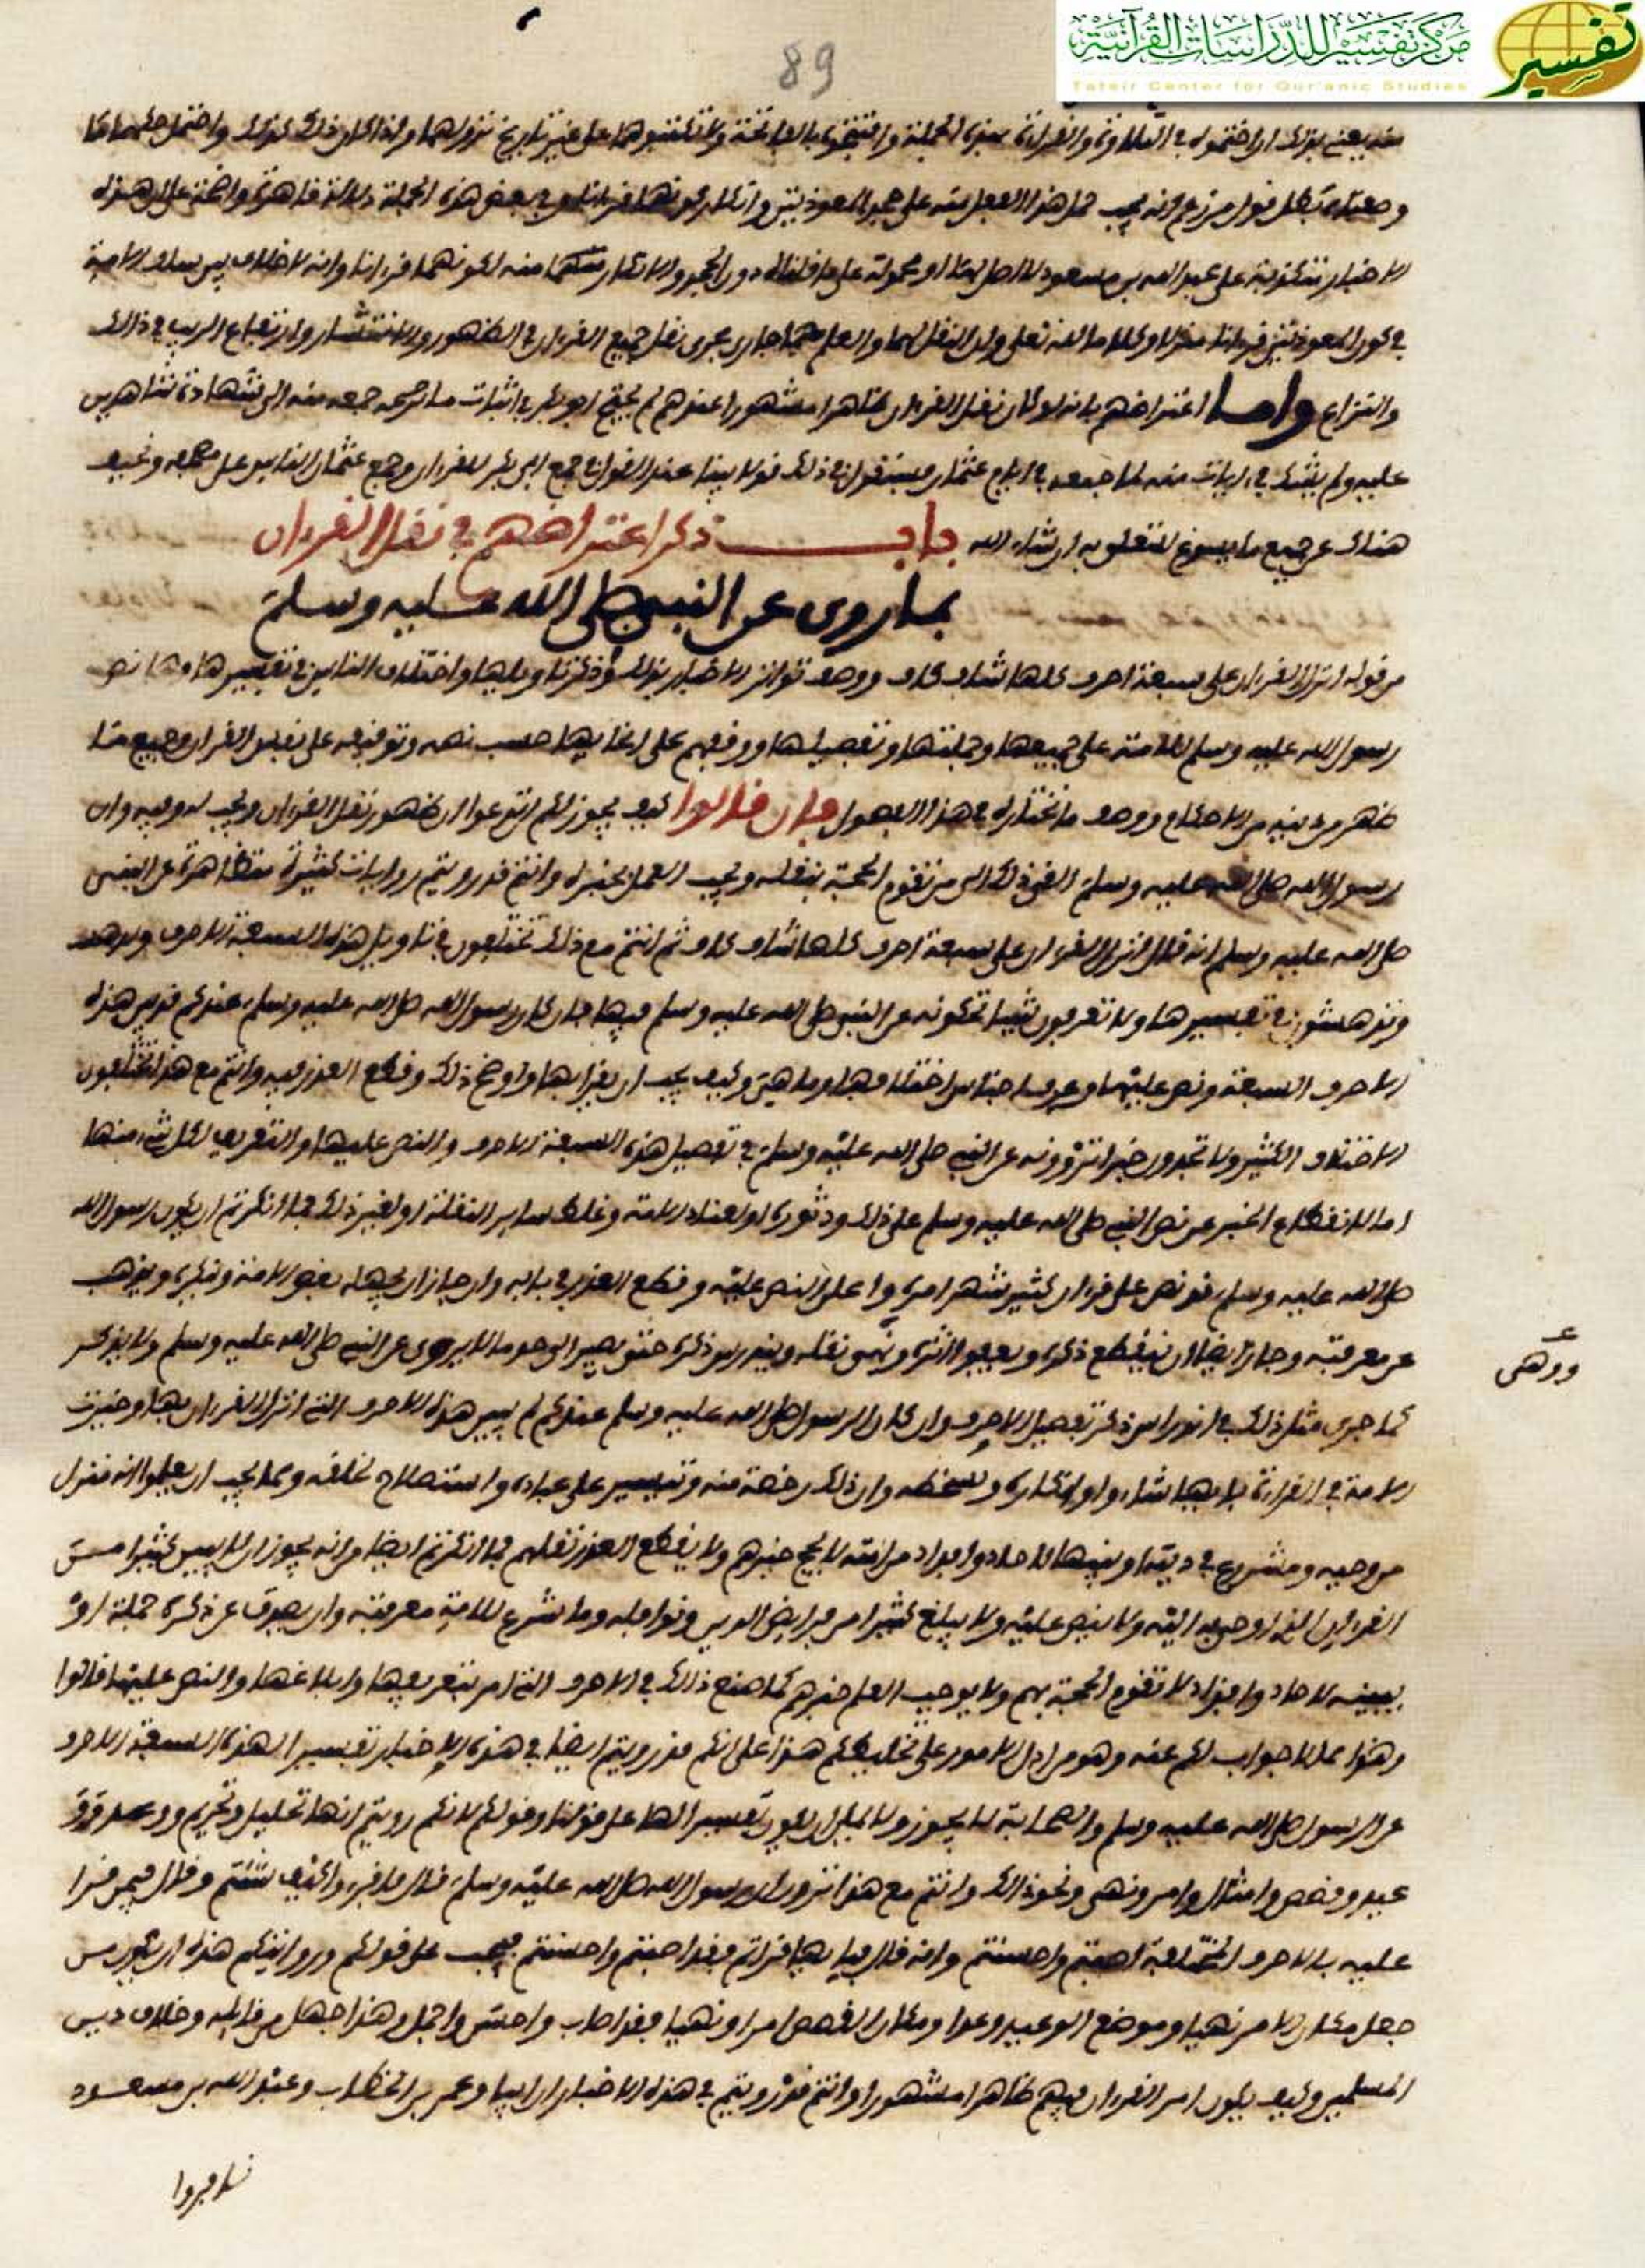 مركز تفسير للدراسات القرآنية
تفسير
Tafsir Center for Qur'anic Studies
89
منه يعني بذلك ان اختموا به في التلاوة والقراءة بهذه الجملة وافتتحوا بالفاتحة ولا تكتبوهما على غير تاريخ نزولهما واذا كان ذلك كذلك واحتمل
بطل قول من زعم انه يجب حمل هذا الفعل منه على جحد المعوذتين وانكار كونهما قرءانا وفي بعض هذه الجملة دلالة ظاهرة واضحة على ان هذه
الاخبار متكذبة على عبد الله بن مسعود لا اصل لها او محمولة على ما قلناه دون الجحد والانكار منه لكونهما قرءانا وانه لا خلاف بين سلف الامة
في كون المعوذتين قرءانا منزلا وكلاما لله تعلى وان النقل لهما والعلم بهما جار مجرى نقل جميع القرءان في الظهور والانتشار وارتفاع الريب في ذلك
والنزاع واما اعتراضهم بانه لو كان نقل القرءان ظاهرا مشهورا عندهم لم يحتج ابو بكر في اثبات ما جمعه منه الى شهادة شاهدين
عليه ولم يشك في ايات منه لما جمعه في ايام عثمان فسنقول في ذلك قولا بينا عند القول في جمع ابي بكر للقرءان وجمع عثمان الناس على مصحفه ونجيب
هناك عن جميع ما يسوغ التعلق به ان شاء الله باب ذكر اعتراضهم في نقل القرءان
بما روى عن النبي صلى الله عليه وسلم
من قوله انزل القرءان على سبعة احرف كلها شاف كاف ووصف تواتر الاخبار بذلك وذكر تاويلها واختلاف الناس في تفسيرها وما نص
رسول الله عليه وسلم للامة على جميعها وجملتها وتفصيلها ووقفهم على اعيانها حسب نصه وتوقيفه على نفس القرءان وجميع ما
ظهر من دينه من الاحكام ووصف ما نختاره في هذا الفصول فان قالوا كيف يجوز لكم ان تدعوا ان ظهور نقل القرءان ويجب له وفيه وان
رسول الله صلى الله عليه وسلم القى ذلك الى من تقوم الحجة بنقله ويجب العمل بخبره وانتم قد رويتم روايات كثيرة متظاهرة عن النبي
صلى الله عليه وسلم انه قال انزل القرءان على سبعة احرف كلها شاف كاف ثم انتم مع ذلك تختلفون في تاويل هذه السبعة الاحرف
في تفسيرها ولا تعرفون شيئا تحكونه عن النبي صلى الله عليه وسلم فيها فان كان رسول الله صلى الله عليه وسلم عندكم قد بين هذه
الاحرف السبعة ونص عليها وعرف اجناس اختلافها وما هي وكيف يجب ان يقرا بها واوضح ذلك وقطع العذر فيه وانتم مع هذا تختلفون
الاختلاف الكثير ولا تجدون خبرا تروونه عن النبي صلى الله عليه وسلم في تفصيل هذه السبعة الاحرف والنص عليها والتعريف لكل شيء منها
اما لانقطاع الخبر عن نص النبي صلى الله عليه وسلم على ذلك ودثوره او لعناد الامة وغلط ساير النقلة او لغير ذلك فما انكرتم ان يكون رسول الله
صلى الله عليه وسلم قد نص على قرءان كثير شهر امره واعلن النص عليه وقطع العذر في بابه وان جاز ان يجهله بعض الامة وينكره ويذهب
عن معرفته وجاز ايضا ان ينقطع ذكره ويعفو اثره ويهي نقله ويندرس ذكره حتى يصير الى حد ما لا يروى عن النبي صلى الله عليه وسلم ولا يذكر
كما جرى مثل ذلك في اندراس ذكر تفصيل الاحرف وان كان الرسول صلى الله عليه وسلم عندكم لم يبين هذه الاحرف التي انزل القرءان بها وخيرت
الامة في القراءة بايها شاءوا وان ذلك رخصة منه وتيسير على عباده واستصلاح لخلقه وما يجب ان يعلموا انه منزل
من وحيه ومشروع في دينه او بينها للاحاد وافراد من امته لا يحج خبرهم ولا يقطع العذر نقلهم فما انكرتم ايضا من انه يجوز ان لا يبين كثيرا من
القرءان الذي اوحي اليه ولا ينص عليه ولا يبلغ كثيرا من فرايض الدين ونوافله وما شرع للامة معرفته وان يصدف عن ذكره جملة او
يبينه لاحاد وافراد لا تقوم الحجة بهم ولا يوجب العلم خبرهم كما صنع ذلك في الاحرف التي امر بتعريفها وابلاغها والنص عليها قالوا
وهذا مما لا جواب لكم عنه وهو من ادل الامور على تخليطكم هذا على انكم قد رويتم ايضا في هذه الاخبار تفسيرا لهذه السبعة الاحرف
عن الرسول صلى الله عليه وسلم والصحابة لا يجوز ولا يمكن ان يكون تفسيرا لها على قولنا وقولكم لانكم رويتم انها تحليل وتحريم ووعد و
عيد وقصص وامثال وامر ونهي ونحو ذلك وانتم مع هذا تروون ان رسول الله صلى الله عليه وسلم قال فاقرءوا كيف شئتم وقال فيمن قرا
عليه بالاحرف المختلفة اصبتم واحسنتم وانه قال فبايها قراتم فقد اصبتم واحسنتم فيجب على قولكم وروايتكم هذه ان يكون من
جعل مكان الامر نهيا وموضع الوعيد وعدا ومكان القصص امرا ونهيا فقد اصاب واحسن واجمل وهذا جهل من قايله وخلاف دين
المسلمين وكيف يكون امر القرءان فيهم ظاهرا مشهورا وانتم قد رويتم في هذه الاخبار ان ابيا وعمر بن الخطاب وعبد الله بن مسعود